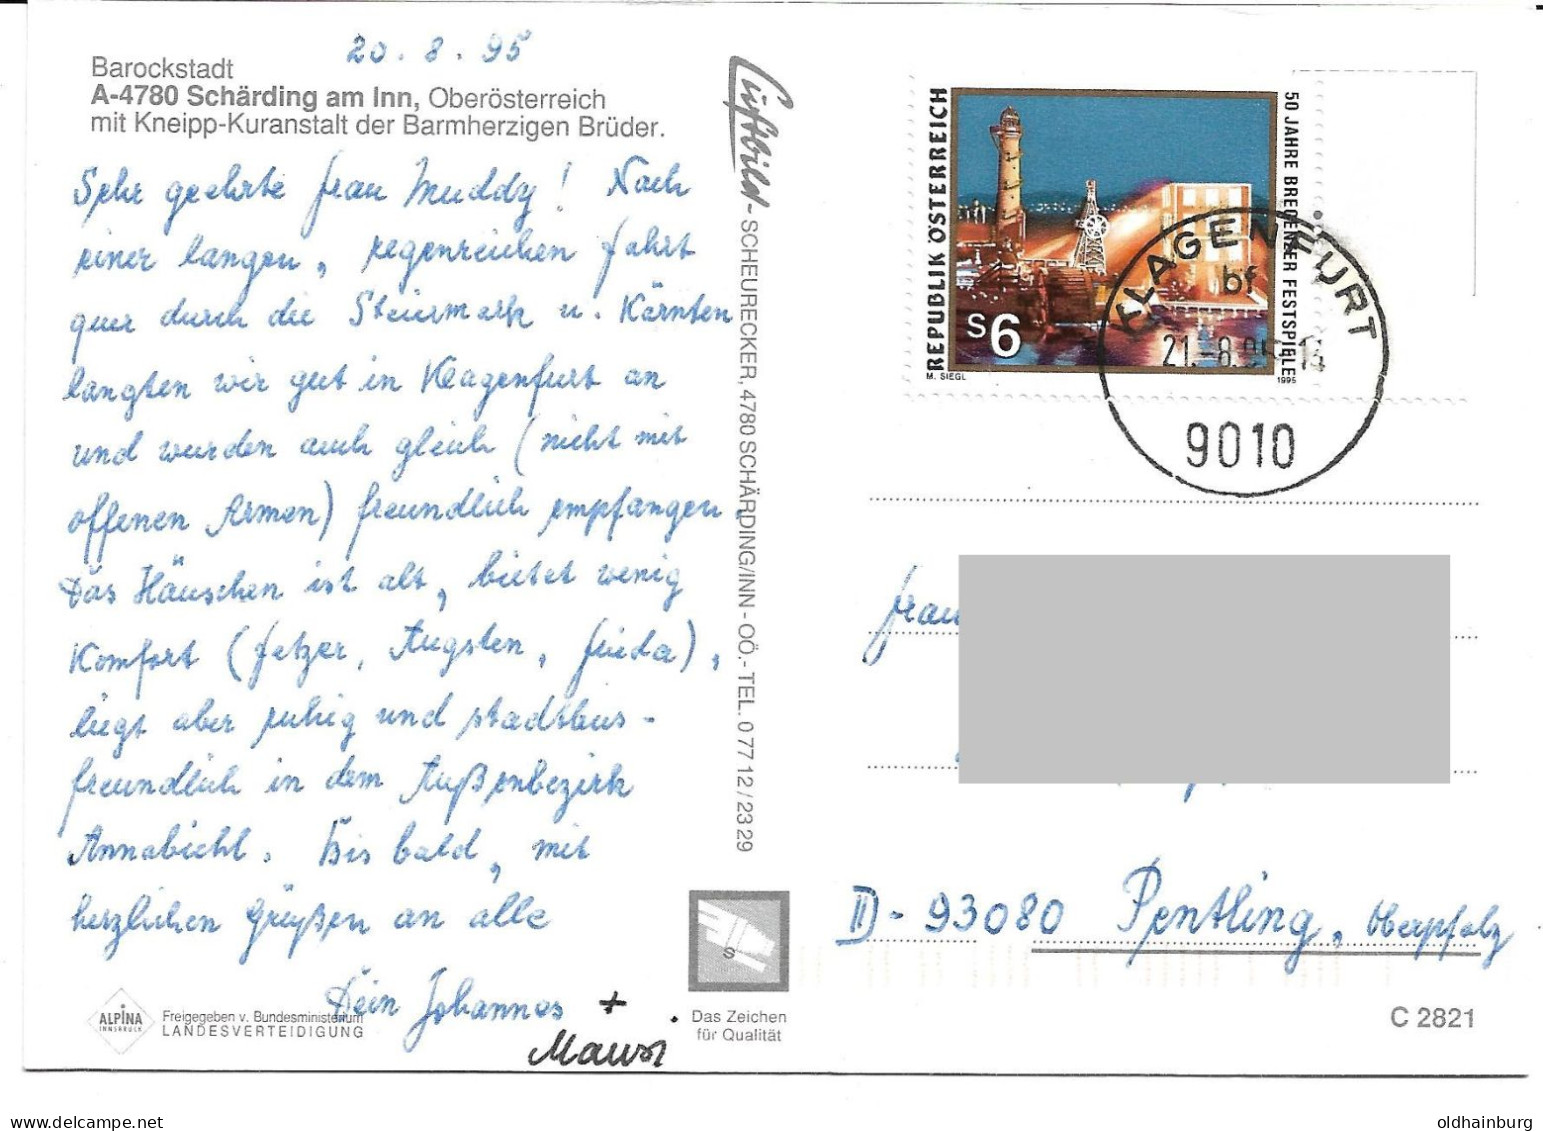 20. 8. 95
Barockstadt
A-4780 Schärding am Inn, Oberösterreich
mit Kneipp-Kuranstalt der Barmherzigen Brüder.
Sehr geehrte Frau Muddy! Nach
einer langen, regenreichen Fahrt
quer durch die Steiermark u. Kärnten
langten wir gut in Klagenfurt an
und wurden auch gleich (nicht mit
offenen Armen) freundlich empfangen.
Das Häuschen ist alt, bietet wenig
Komfort (Fetzer, Augsten, Frieda),
liegt aber ruhig und stadtbus-
freundlich in dem Außenbezirk
Annabichl. Bis bald, mit
herzlichen Grüßen an alle
Dein Johannes +
Mausi
ALPINA
INNSBRUCK
Freigegeben v. Bundesministerium
LANDESVERTEIDIGUNG
Luftbild-SCHEURECKER, 4780 SCHÄRDING/INN - OÖ. - TEL. 0 77 12 / 23 29
S
Das Zeichen
für Qualität
REPUBLIK ÖSTERREICH
50 JAHRE BREGENZER FESTSPIELE
S6
M. SIEGL
1995
KLAGENFURT
bf
21.-8.95-14
9010
Frau
D-93080 Pentling, Oberpfalz
C 2821
oldhainburg
delcampe.net